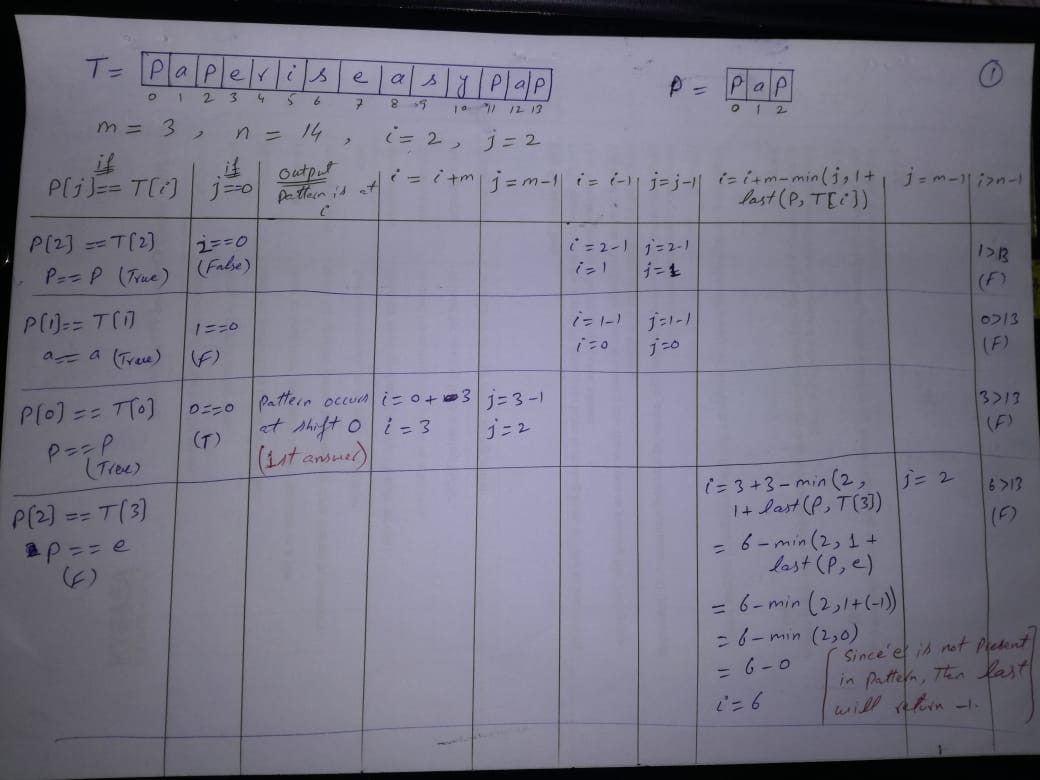 T= p a p e r i s e a s y p a p
0 1 2 3 4 5 6 7 8 9 10 11 12 13
P = p a p
0 1 2
1
m = 3 , n = 14 , i = 2 , j = 2
if
P[j]== T[i]
if
j==0
output
Pattern is at
i
i = i+m
j = m-1
i = i-1
j=j-1
i=i+m-min(j,1+
last(P,T[i])
j=m-1
i>n-1
P[2] == T[2]
P== P (True)
2==0
(False)
i=2-1
i=1
j=2-1
j=1
1>13
(F)
P[1]== T[1]
a== a (True)
1==0
(F)
i=1-1
i=0
j=1-1
j=0
0>13
(F)
P[0] == T[0]
P==P
(True)
0==0
(T)
Pattern occurs
at shift 0
(1st answer)
i= 0+3
i = 3
j=3-1
j=2
3>13
(F)
P[2] == T[3]
P== e
(F)
i= 3+3-min(2,
1+ last(P, T[3])
= 6-min(2, 1+
last(P, e)
= 6-min (2,1+(-1))
= 6-min (2,0)
= 6-0
i=6
j= 2
6>13
(F)
Since 'e' is not Present
in Pattern, Then last
will return -1.